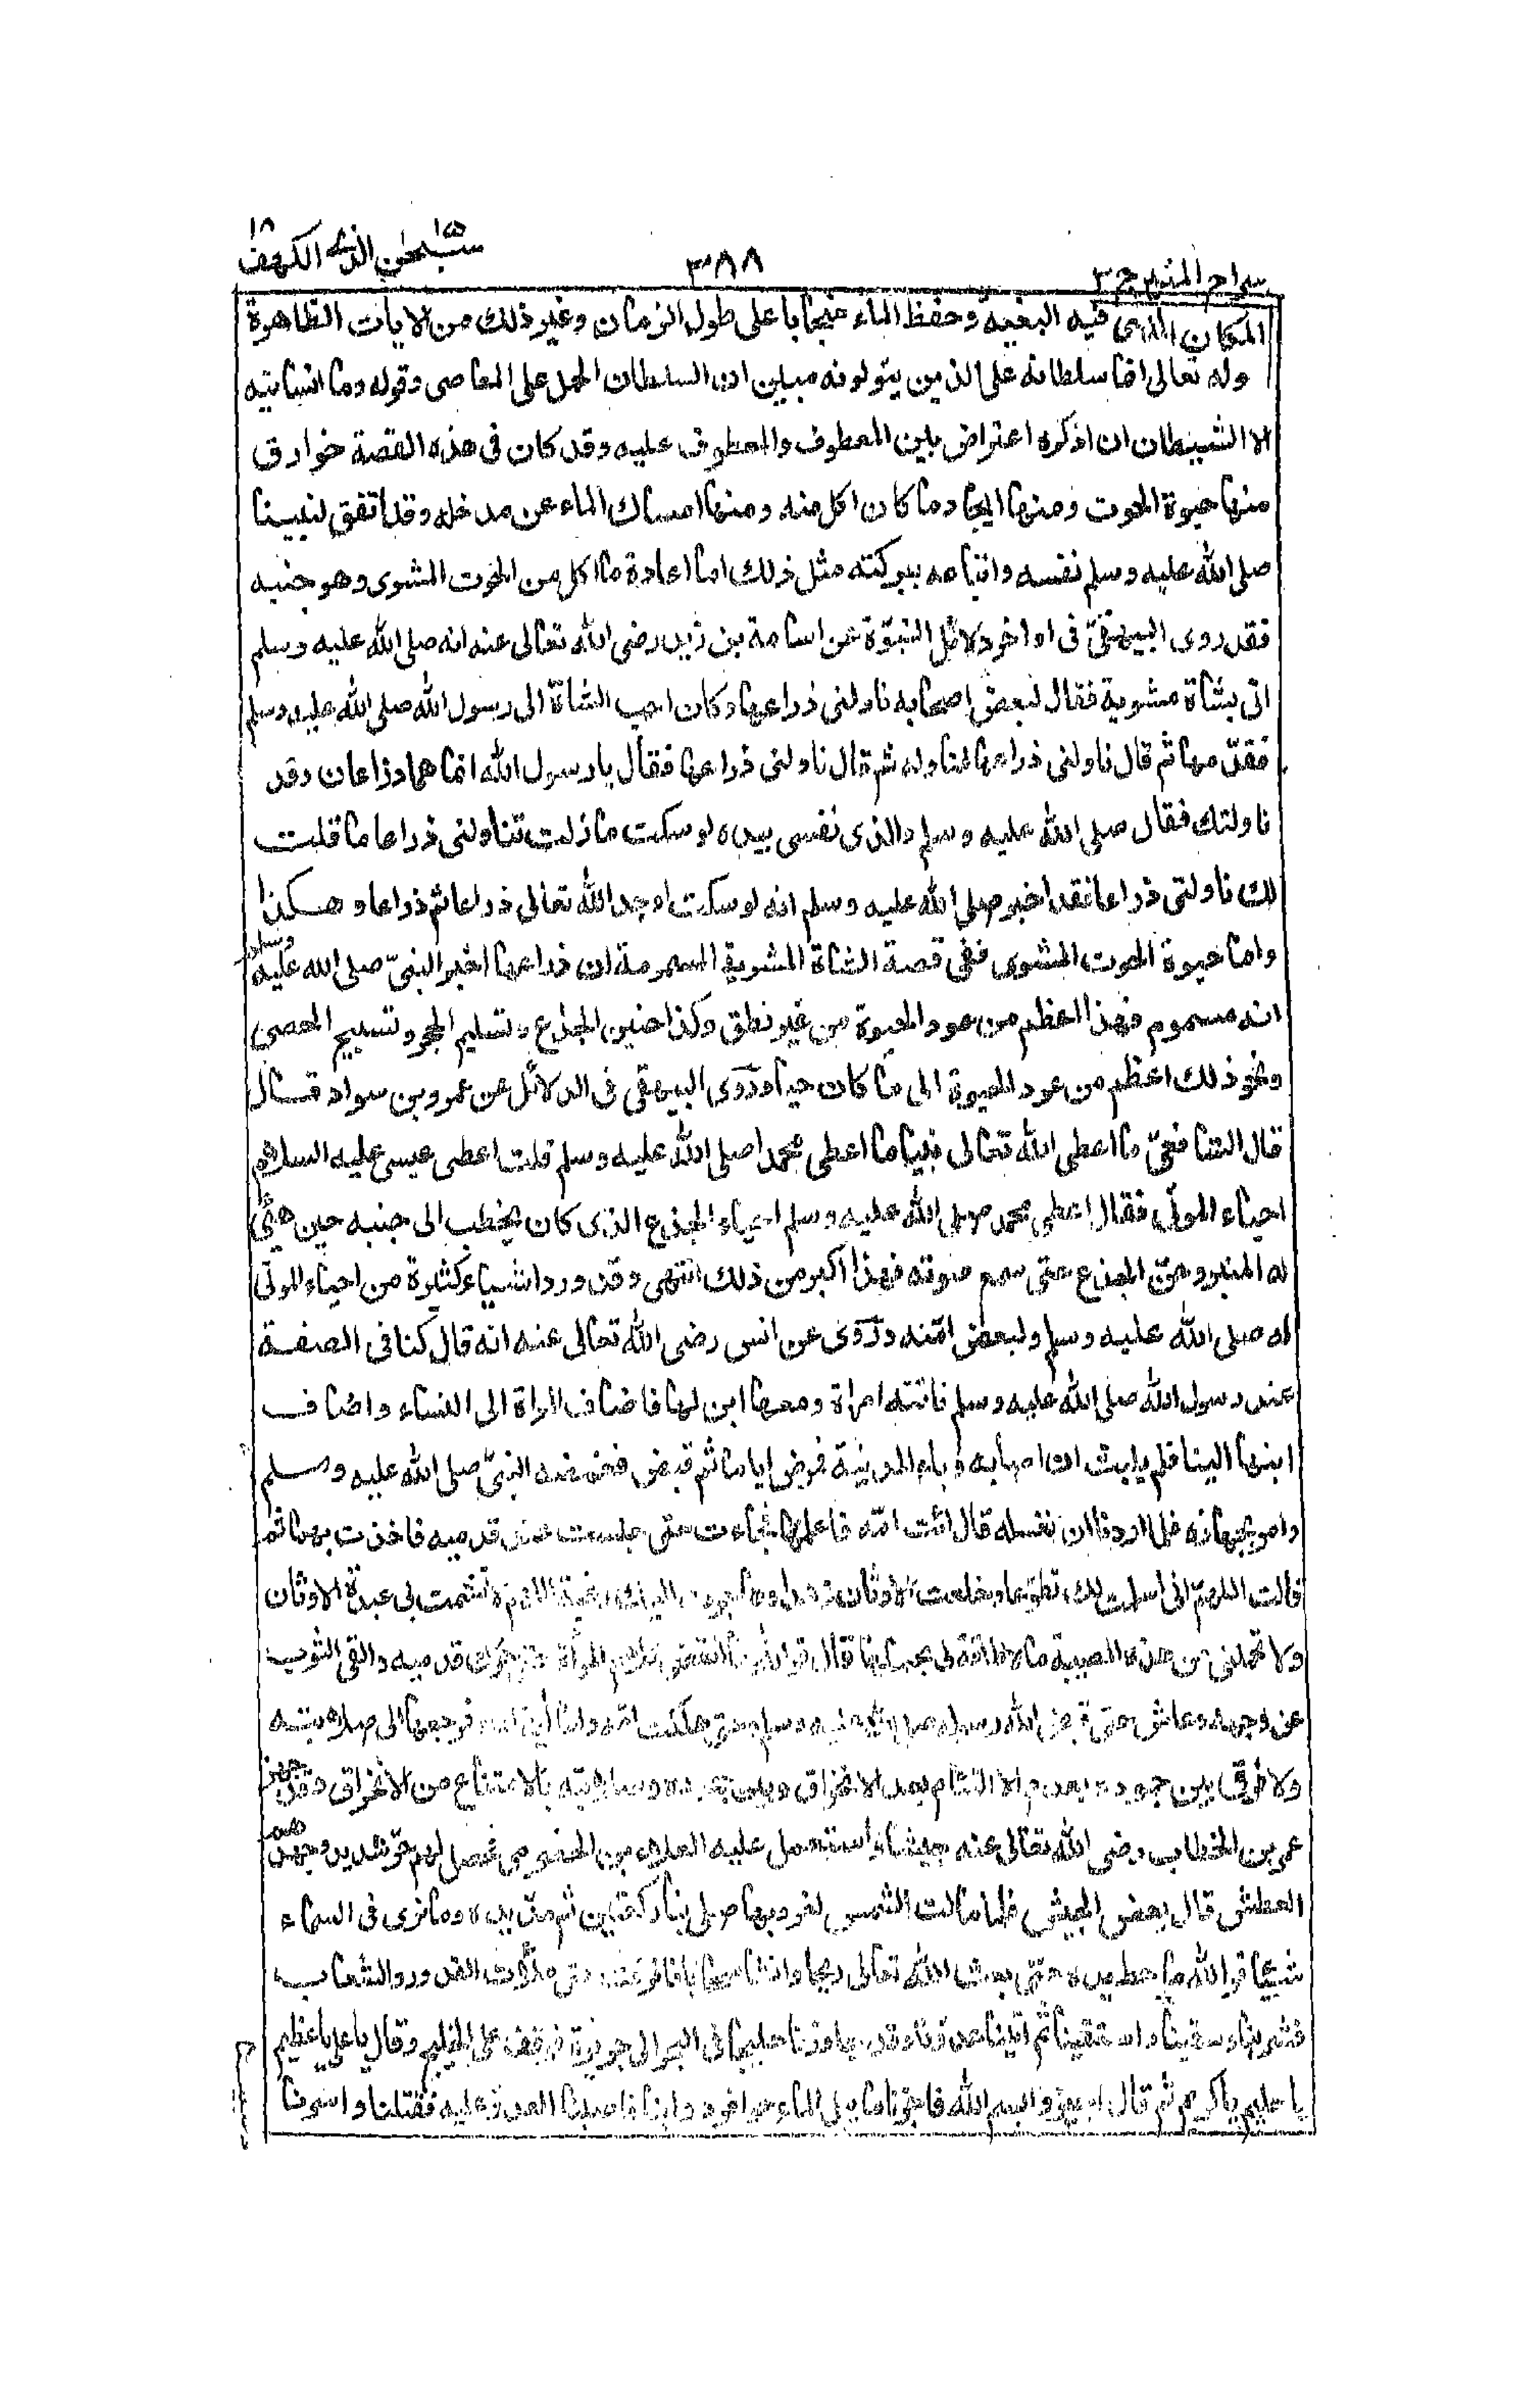 سراج المنير ج ٣
٣٨٨
سبحن الذى ١٥ الكهف ١٨
المكان الذى فيه البغية وحفظ الماء منجابا على طول الزمان وغير ذلك من الايات الظاهرة
وله تعالى انما سلطانه على الذين يتولونه مبين ان السلطان الحمل على المعاصى وقوله وما انسانيه
الا الشيطان ان اذكره اعتراض بين المعطوف والمعطوف عليه وقد كان فى هذه القصة خوارق
منها حيوة الحوت ومنها ايجاد ما كان اكل منه ومنها امساك الماء عن مدخله وقد اتفق لنبينا
صلى الله عليه وسلم نفسه واتباعه ببركته مثل ذلك اما اعادة ما اكل من الحوت المشوى وهو جنبه
فقد روى البيهقىّ فى اواخر دلائل النبوّة عن اسامة بن زيد رضى الله تعالى عنه انه صلى الله عليه وسلم
اتى بشاة مشوية فقال لبعض اصحابه ناولنى ذراعها وكان احب الشاة الى رسول الله صلى الله عليه وسلم
فقدّمها ثم قال ناولنى ذراعها فناوله ثم قال ناولنى ذراعها فقال يا رسول الله انما هما ذراعان وقد
ناولتك فقال صلى الله عليه وسلم والذى نفسى بيده لو سكت ما زلت تناولنى ذراعا ما قلت
لك ناولنى ذراعا فقد اخبر صلى الله عليه وسلم انه لو سكت اوجد الله تعالى ذراعا ثم ذراعا وهكذا
واما حيوة الحوت المشوى ففى قصة الشاة المشوية المسمومة ان ذراعها اخبر النبىّ صلى الله عليه وسلم
انه مسموم فهذا اعظم من عود الحيوة من غير نطق وكذا حنين الجذع وتسليم الحجر وتسبيح الحصى
ونحو ذلك اعظم من عود الحيوة الى ما كان حيا وروى البيهقى فى الدلائل عن عمرو بن سواد قال
قال الشافعىّ ما اعطى الله تعالى نبيا ما اعطى محمدا صلى الله عليه وسلم قلت اعطى عيسى عليه السلام
احياء الموتى فقال اعطى محمد صلى الله عليه وسلم احياء الجذع الذى كان يخطب الى جنبه حين هيّئ
له المنبر وحنّ الجذع حتى سمع صوته فهذا اكبر من ذلك انتهى وقد ورد اشياء كثيرة من احياء الموتى
له صلى الله عليه وسلم ولبعض امّته وروى عن انس رضى الله تعالى عنه انه قال كنا فى الصفة
عند رسول الله صلى الله عليه وسلم فاتته امراة ومعها ابن لها فاضاف المراة الى النساء واضاف
ابنها الينا فلم يلبث ان اصابه وباء المدينة فمرض اياما ثم قبض فغمضه النبىّ صلى الله عليه وسلم
وامر بجهازه فلما اردنا ان نغسله قال ائت امّه فاعلمها فجاءت حتى جلست عند قدميه فاخذت بهما ثم
قالت اللهمّ انى اسلمت لك تطوّعا وخلعت الاوثان زهدا وهاجرت اليك رغبة اللهمّ لا تشمت بى عبدة الاوثان
ولا تحملنى من هذه المصيبة ما لا طاقة لى بحملها قال فوالله ما انقضى كلام المرأة حتى حرّك قدميه والقى الثوب
عن وجهه وعاش حتى قبض الله رسوله صلى الله عليه وسلم وحتى هلكت امّه واما فرجعها الى صلابته
ولا فرق بين جموده بعد الالتئام بعد الانخراق وبين جموده وصلابته بالامتناع من الانخراق وقد جهز
عمر بن الخطاب رضى الله تعالى عنه جيشا واستعمل عليه العلاء بن الحضرمى فحصل لهم حرّ شديد وجهدهم
العطش قال بعض الجيش فلما مالت الشمس لغروبها صلى بنا ركعتين ثم مدّ يده وما نرى فى السماء
شيئا فوالله ما حط يده حتى بعث الله تعالى ريحا وانشا سحابا فافرغت حتى ملأت الغدور والشعاب
فشربنا وسقينا واستقينا ثم اتينا عدوّنا وقد جاوزنا خليجا فى البحر الى جزيرة فوقف على الخليج وقال يا على يا عظيم
يا حليم يا كريم ثم قال اجيزوا بسم الله فاجزنا ما يبل الماء حوافر دوابنا فاصبنا العدوّ عليه فقتلنا واسرنا